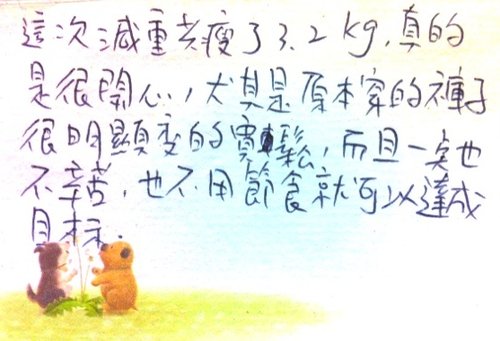 這次減重共瘦了3.2kg,真的
是很開心,尤其是原本穿的褲子
很明顯變的寬鬆,而且一點也
不辛苦,也不用節食就可以達成
目标.